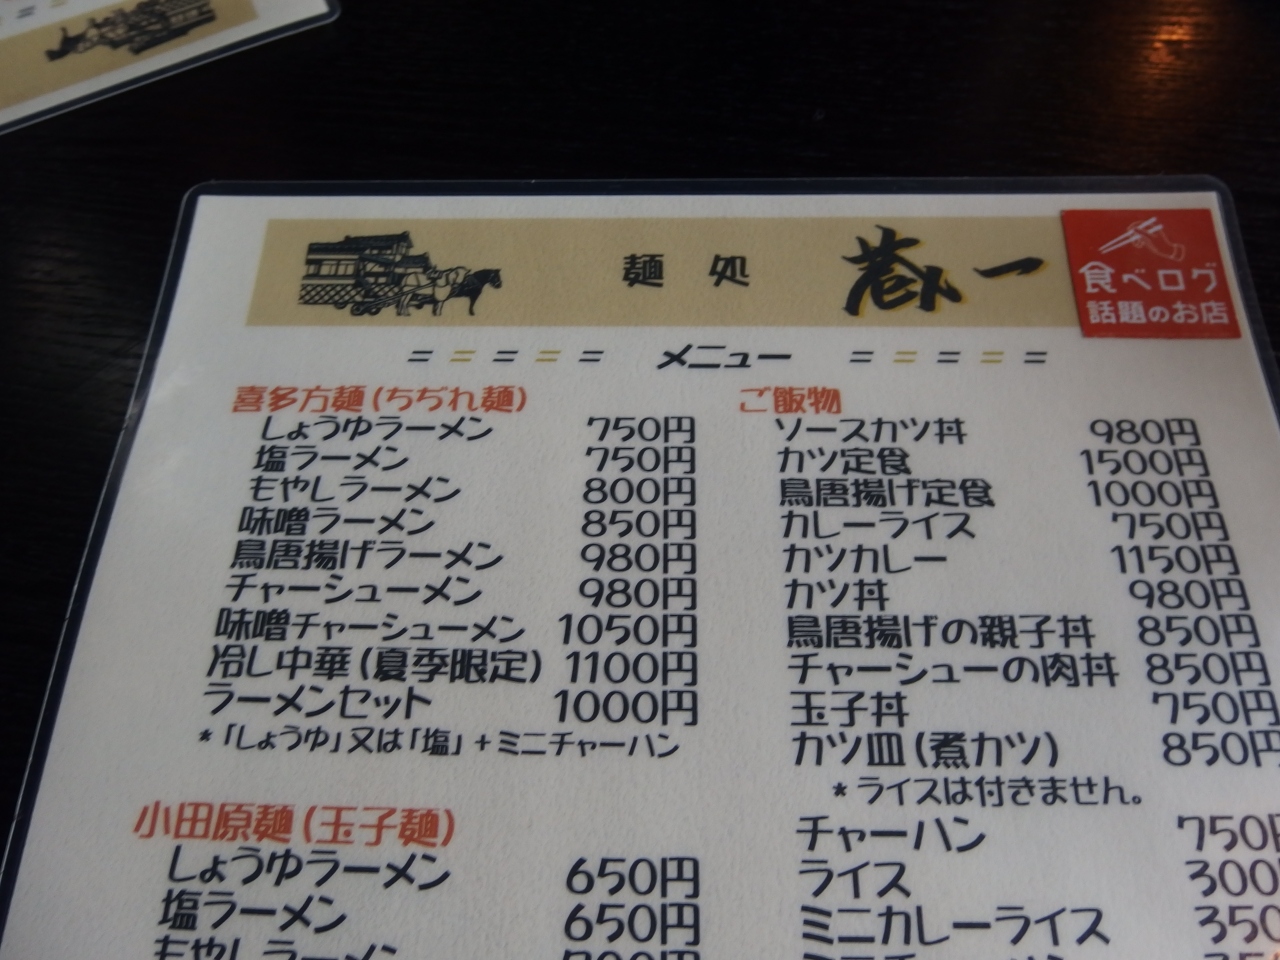 麺処
一
食べログ
話題のお店
メニュー
喜多方麺(ちぢれ麺)
しょうゆラーメン 750円
塩ラーメン 750円
もやしラーメン 800円
味噌ラーメン 850円
鳥唐揚げラーメン 980円
チャーシューメン 980円
味噌チャーシューメン 1050円
冷し中華(夏季限定) 1100円
ラーメンセット 1000円
*「しょうゆ」又は「塩」+ミニチャーハン
小田原麺(玉子麺)
しょうゆラーメン 650円
塩ラーメン 650円
もやしラーメン
ご飯物
ソースカツ丼 980円
カツ定食 1500円
鳥唐揚げ定食 1000円
カレーライス 750円
カツカレー 1150円
カツ丼 980円
鳥唐揚げの親子丼 850円
チャーシューの肉丼 850円
玉子丼 750円
カツ皿(煮カツ) 850円
*ライスは付きません。
チャーハン 750円
ライス 300
ミニカレーライス 350